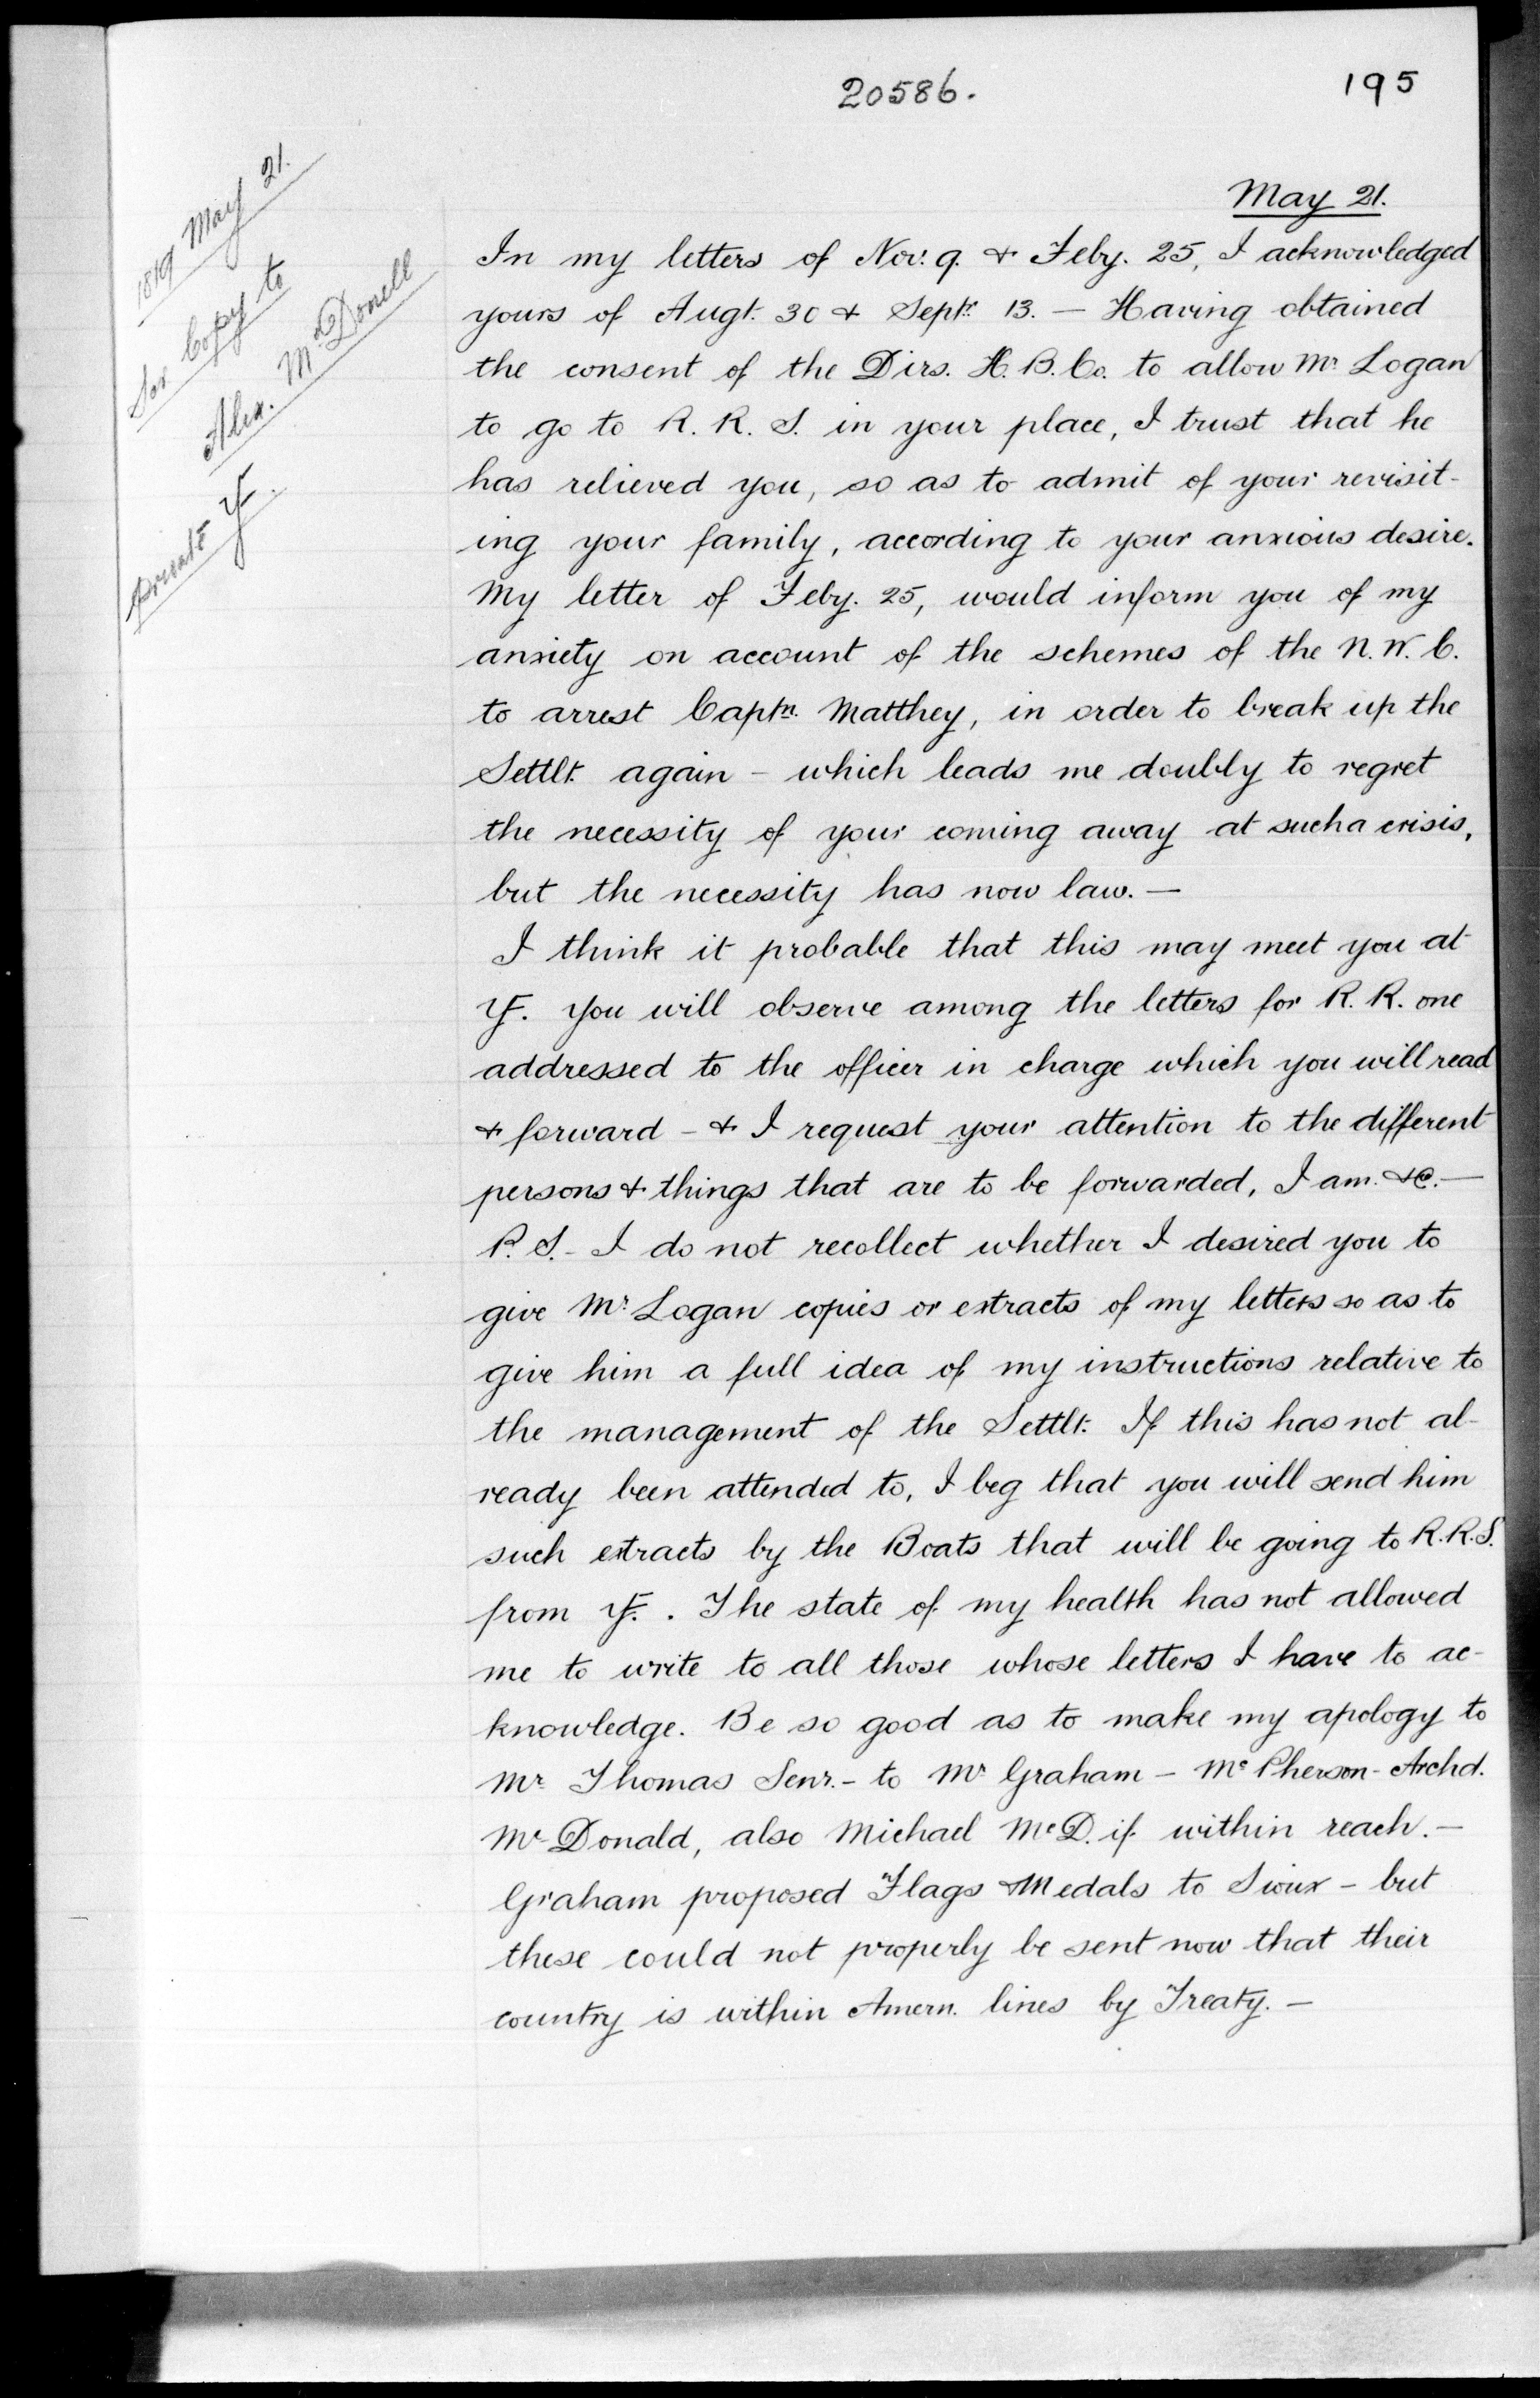 20586.
195
1819 May 21.
Sor Copy to
Alex. McDonell
private YF.
May 21.
In my letters of Nov: 9. & Feby. 25, I acknowledged
yours of Augt. 30 & Septr. 13. — Having obtained
the consent of the Dirs. H. B. Co. to allow Mr. Logan
to go to R. R. S. in your place, I trust that he
has relieved you, so as to admit of your revisit-
ing your family, according to your anxious desire.
My letter of Feby. 25, would inform you of my
anxiety on account of the schemes of the N. W. C.
to arrest Captn. Matthey, in order to break up the
Settlt. again – which leads me doubly to regret
the necessity of your coming away at such a crisis,
but the necessity has now law. —
I think it probable that this may meet you at
YF. You will observe among the letters for R. R. one
addressed to the officer in charge which you will read
& forward – & I request your attention to the different
persons & things that are to be forwarded, I am. &c. —
P. S. – I do not recollect whether I desired you to
give Mr. Logan copies or extracts of my letters so as to
give him a full idea of my instructions relative to
the management of the Settlt. If this has not al-
ready been attended to, I beg that you will send him
such extracts by the Boats that will be going to R. R. S.
from YF. . The state of my health has not allowed
me to write to all those whose letters I have to ac-
knowledge. Be so good as to make my apology to
Mr. Thomas Senr. – to Mr. Graham – McPherson – Archd.
McDonald, also Michael McD. if within reach. —
Graham proposed Flags & Medals to Sioux – but
these could not properly be sent now that their
country is within Amern. lines by Treaty. —